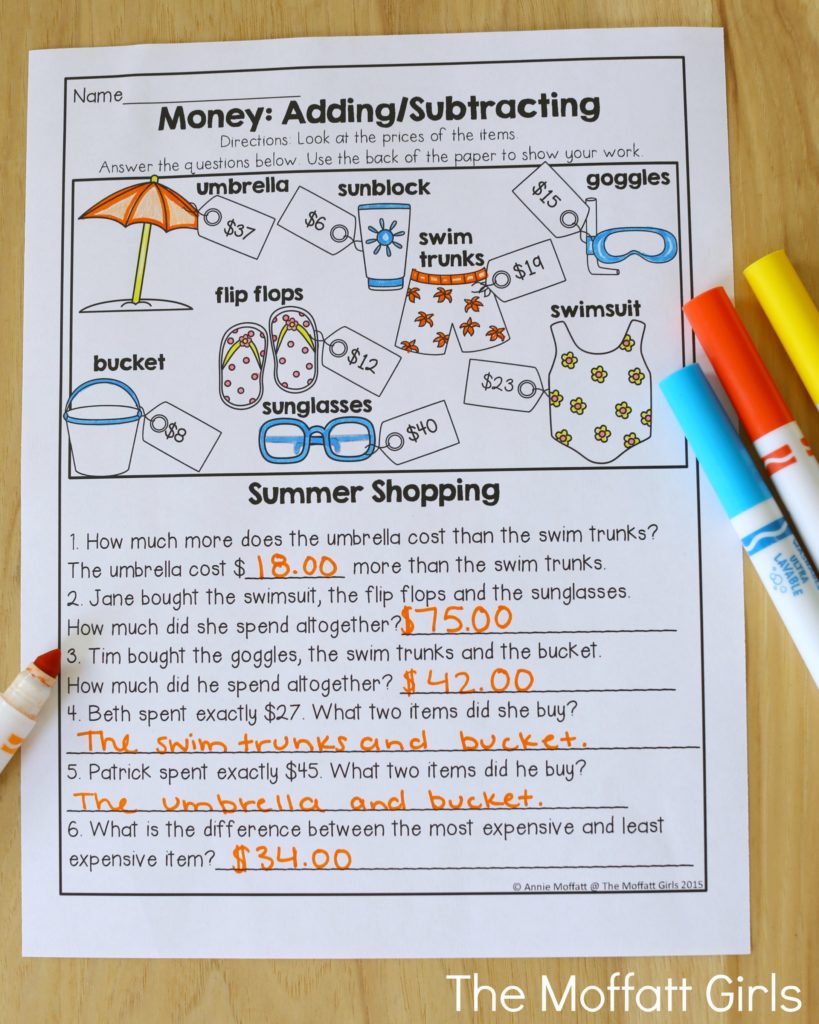 Name
Money: Adding/Subtracting
Directions: Look at the prices of the items.
Answer the questions below. Use the back of the paper to show your work.
umbrella
$37
sunblock
$6
goggles
$15
swim
trunks
$19
flip flops
$12
swimsuit
$23
bucket
$8
sunglasses
$40
Summer Shopping
1. How much more does the umbrella cost than the swim trunks?
The umbrella cost $ 18.00 more than the swim trunks.
2. Jane bought the swimsuit, the flip flops and the sunglasses.
How much did she spend altogether? $75.00
3. Tim bought the goggles, the swim trunks and the bucket.
How much did he spend altogether? $42.00
4. Beth spent exactly $27. What two items did she buy?
The swim trunks and bucket.
5. Patrick spent exactly $45. What two items did he buy?
The umbrella and bucket.
6. What is the difference between the most expensive and least
expensive item? $34.00
© Annie Moffatt @ The Moffatt Girls 2015
ULTRA
LAVABLE
The Moffatt Girls